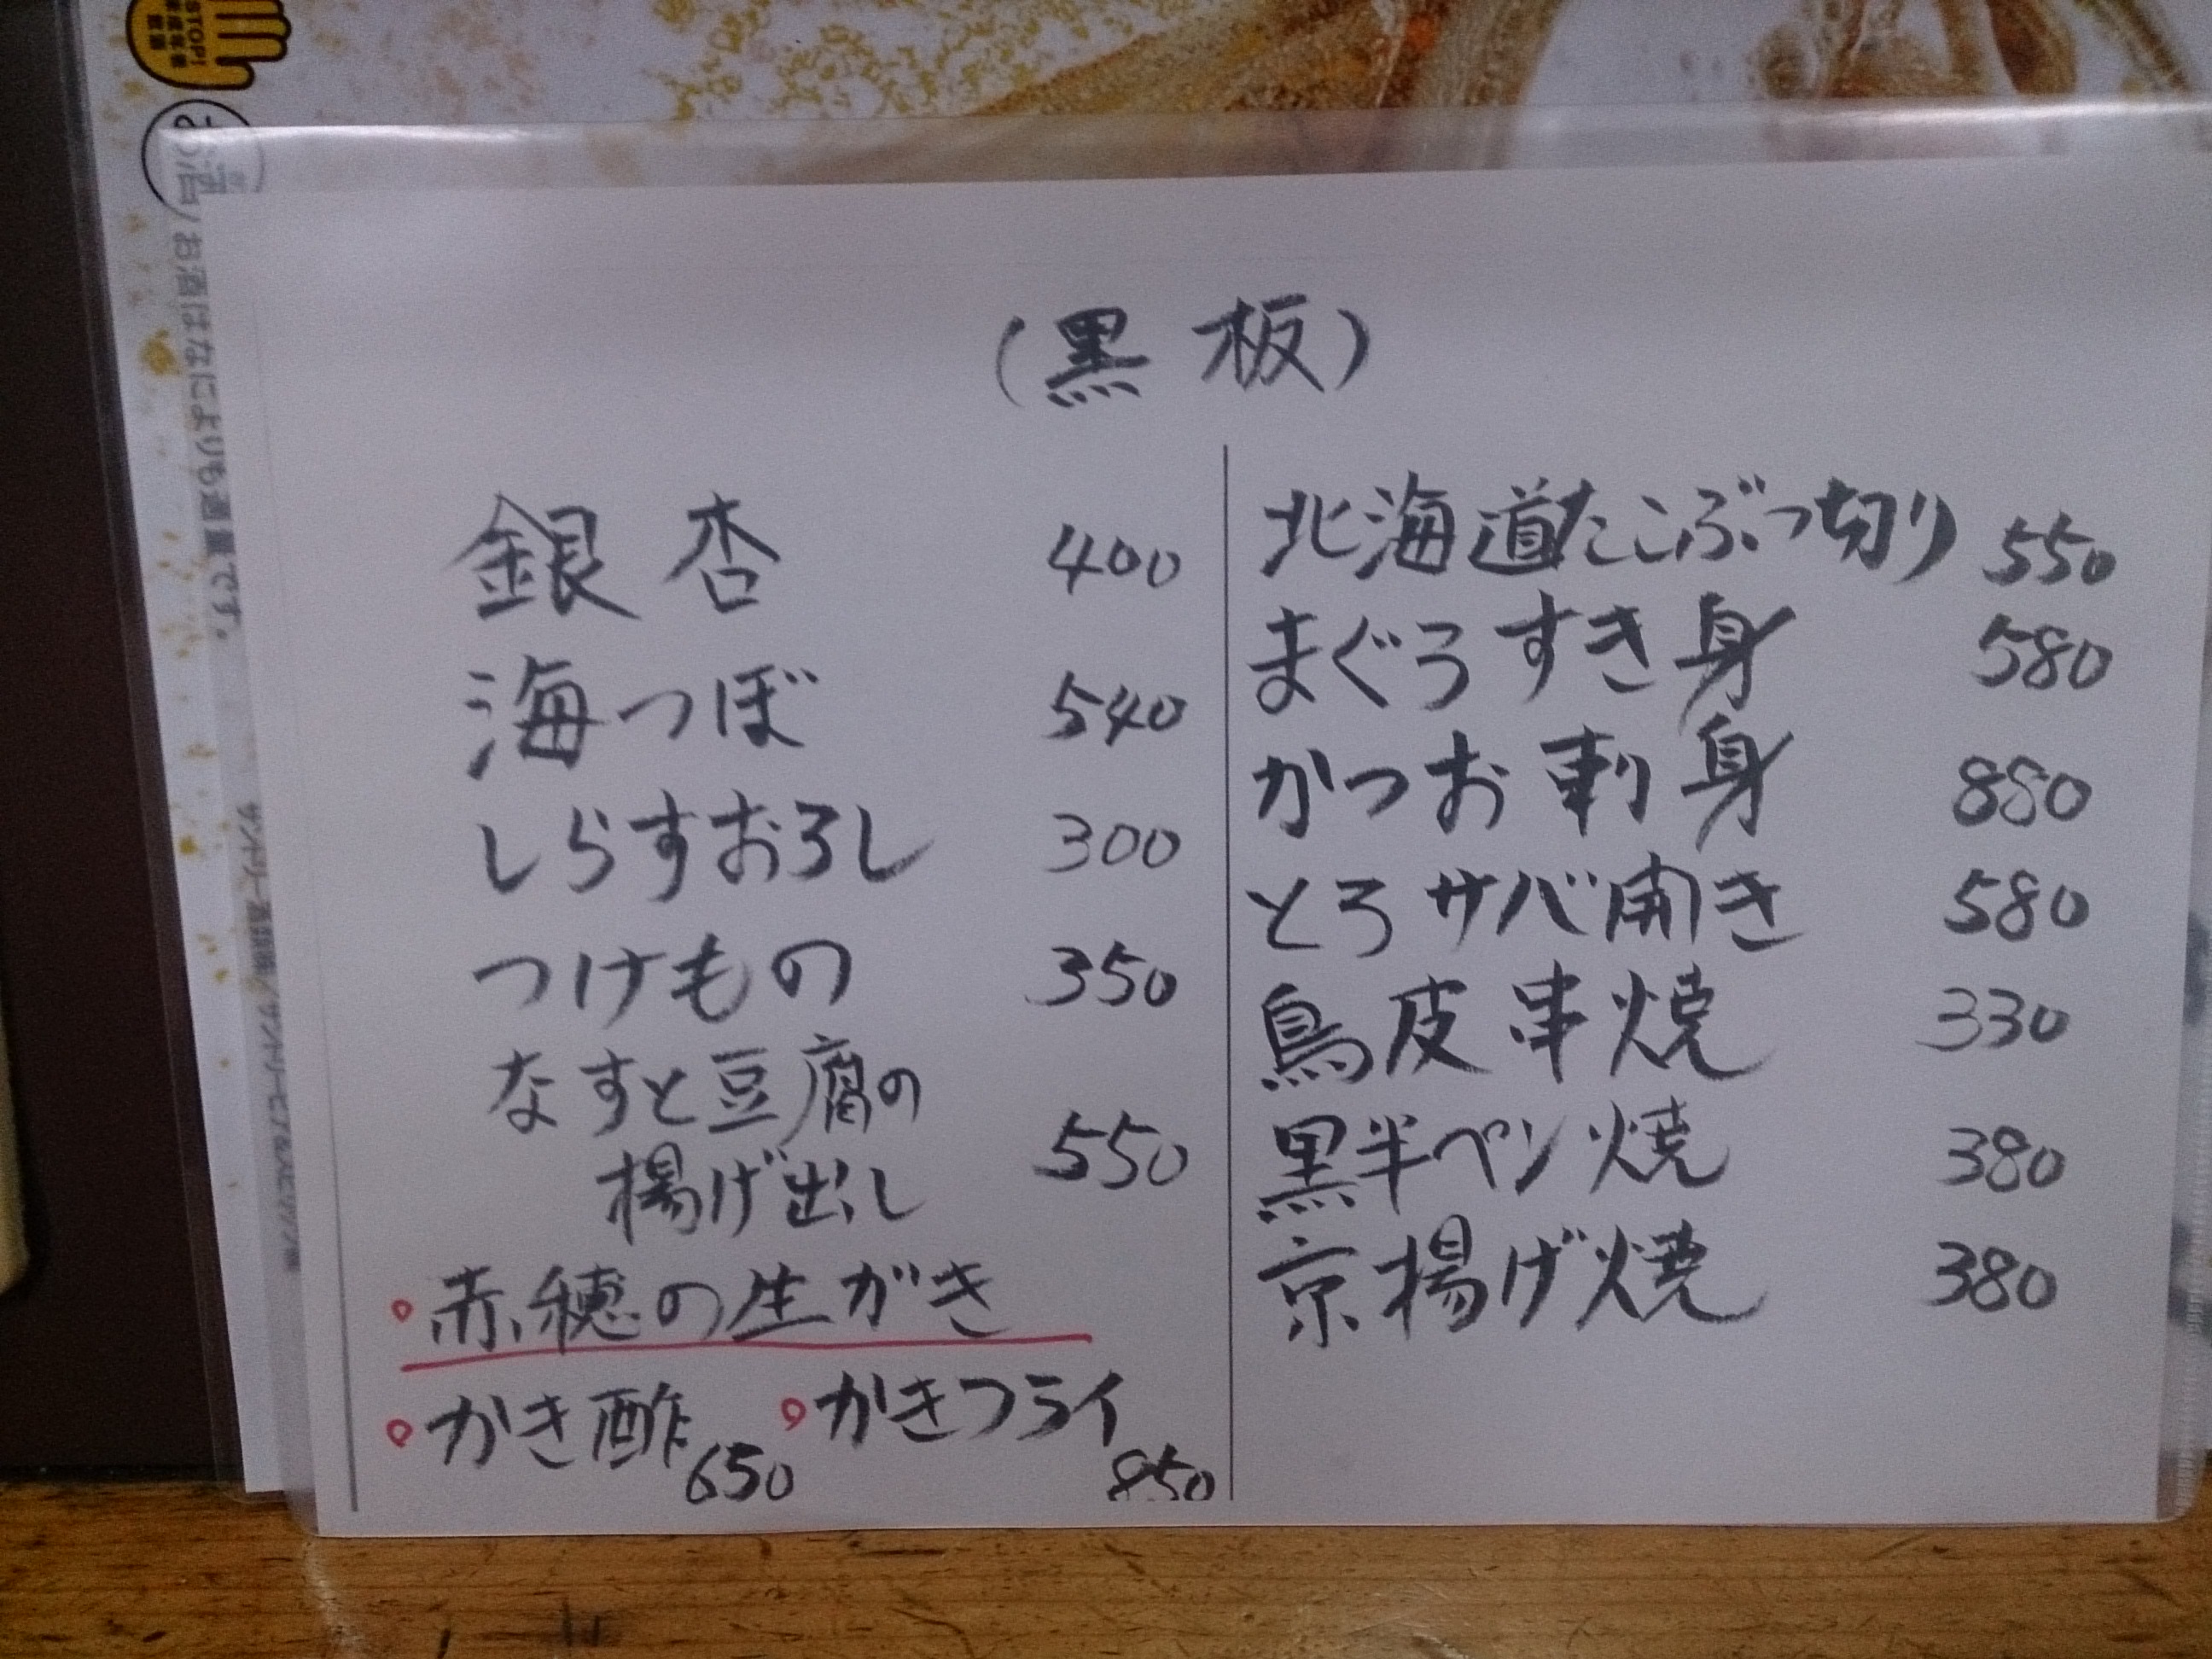 STOP!
お酒はなによりも適量です。
(黒板)
銀杏 400
海つぼ 540
しらすおろし 300
つけもの 350
なすと豆腐の
揚げ出し 550
赤穂の生がき
かき酢 650 かきフライ 850
北海道たこぶつ切り 550
まぐろすき身 580
かつお刺身 880
とろサバ開き 580
鳥皮串焼 330
黒半ペン焼 380
京揚げ焼 380